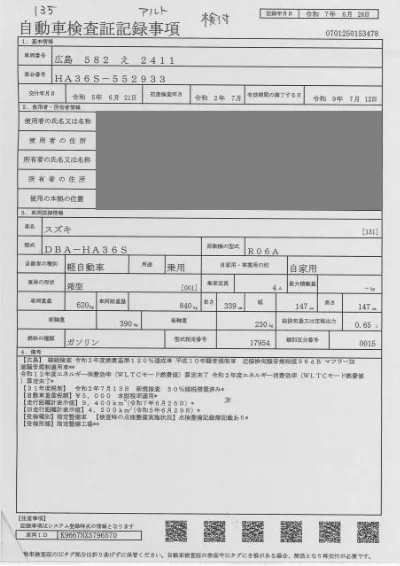 135 アルト 検付
記録年月日 令和 7年 6月 26日
自動車検査証記録事項
0701250153478
1. 基本情報
車両番号 広島 582 え 2411
車台番号 HA36S-552933
交付年月日 令和 5年 6月 21日 初度検査年月 令和 2年 7月 有効期間の満了する日 令和 9年 7月 12日
2. 使用者・所有者情報
使用者の氏名又は名称
使用者の住所
所有者の氏名又は名称
所有者の住所
使用の本拠の位置
3. 車両詳細情報
車名 スズキ [131]
型式 DBA-HA36S 原動機の型式 R06A
自動車の種別 軽自動車 用途 乗用 自家用・事業用の別 自家用
車体の形状 箱型 [001] 乗車定員 4人 最大積載量 -kg
車両重量 620kg 車両総重量 840kg 長さ 339cm 幅 147cm 高さ 147cm
前軸重 390kg 後軸重 230kg 総排気量又は定格出力 0.65 L
燃料の種類 ガソリン 型式指定番号 17954 類別区分番号 0015
4. 備考
[広島] 継続検査 令和2年度燃費基準120%達成車 平成10年騒音規制車 近接排気騒音規制値96dB マフラー加
速騒音規制適用車**
令和12年度エネルギー消費効率(WLTCモード燃費値)算定未了 令和2年度エネルギー消費効率(WLTCモード燃費値
)算定未了*
[31年度税制] 令和2年7月13日 新規検査 50%減税措置済み*
[自動車重量税額] ¥5,000 本則税率適用*
[走行距離計表示値] 9,400km(令和7年6月26日)*
[旧走行距離計表示値] 4,200km(令和5年6月29日)*
[受検種別] 指定整備車 [検査時の点検整備実施状況] 点検整備記録簿記載あり*
[受検形態] 指定整備工場**
[注意事項]
記録事項はシステム登録時点の情報となります
車両ID K9667NX5796570
自動車検査証のICタグ部分は折り曲げずに保管ください。自動車検査証の券面やICタグにき損がある場合、無効となり再交付が必要です。